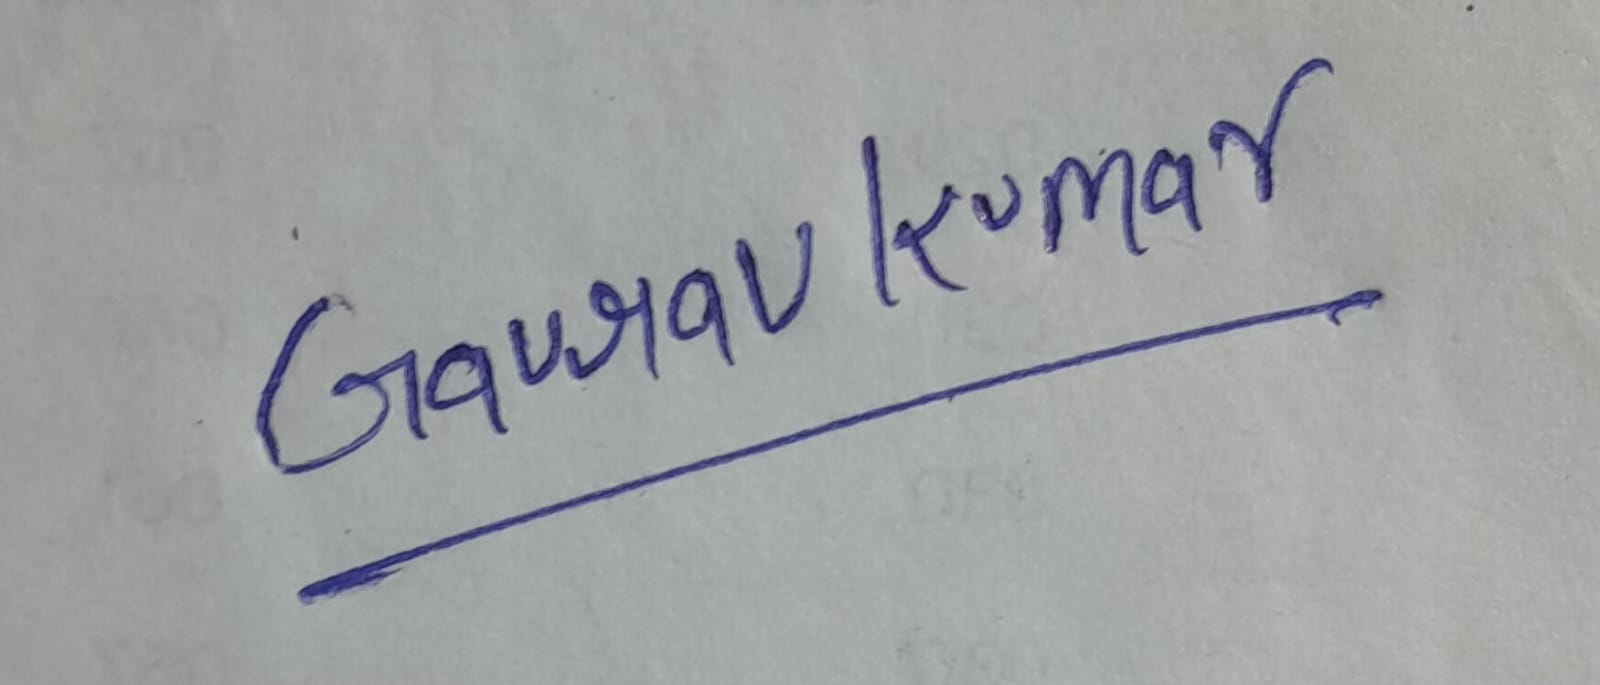 Gaurav Kumar